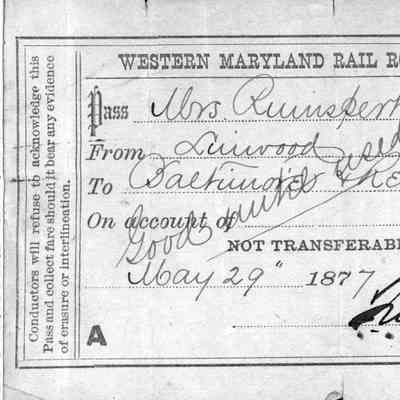 Conductors will refuse to acknowledge this
Pass and collect fare should it bear any evidence
of erasure or interlineation.
WESTERN MARYLAND RAIL R
Pass Mrs. Rumspert
From Linwood
To Baltimore & Re
On account of
Good until used
NOT TRANSFERABLE
May 29" 1877
A